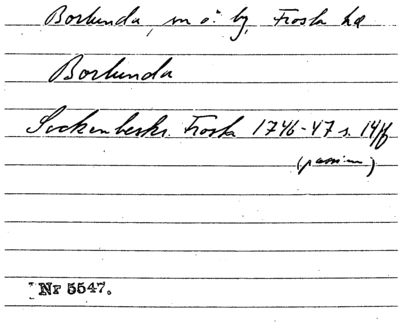 Borlunda, sn o. by, Frosta hd
Borlunda
Sockenbeskr. Frosta 1746-47 s. 14 ff
(passim)
Nr 5547.